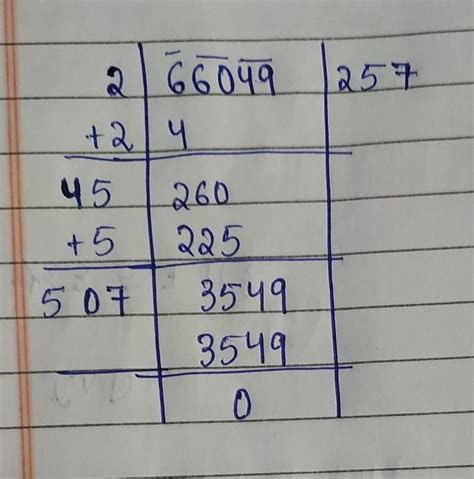 2 66049 257
+2 4
45 260
+5 225
507 3549
3549
0